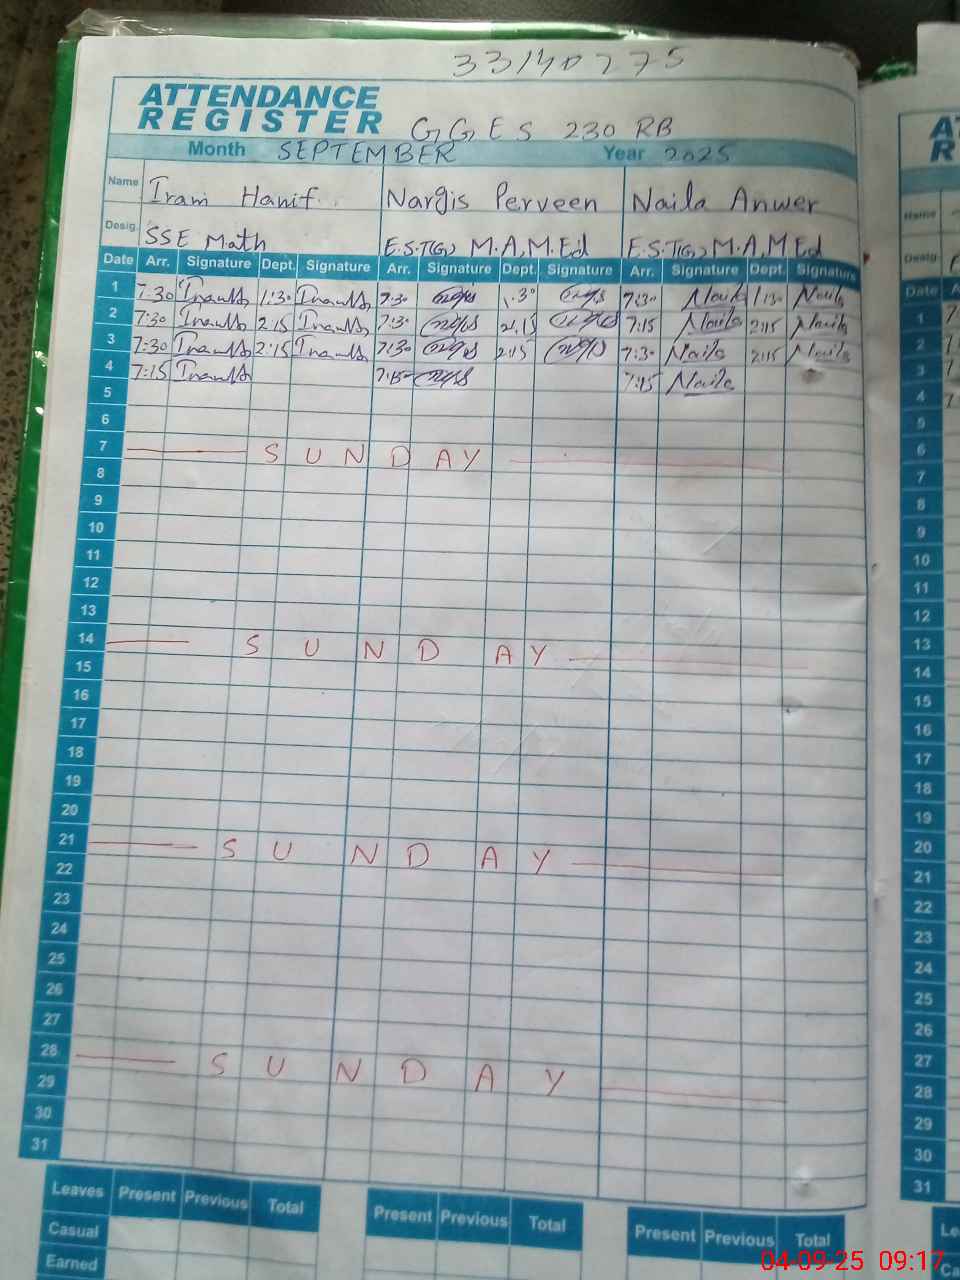 33140775
ATTENDANCE
REGISTER GGES 230 RB
Month SEPTEMBER Year 2025
Name Iram Hanif Nargis Perveen Naila Anwer
Desig. SSE Math E.S.T(G) M.A, M.Ed E.S.T(G) M.A, M.Ed
Date Arr. Signature Dept. Signature Arr. Signature Dept. Signature Arr. Signature Dept. Signature
1 7:30 1:30 7:30 1:30 7:30 Naila 1:30 Naila
2 7:30 2:15 7:30 2:15 7:15 Naila 2:15 Naila
3 7:30 2:15 7:30 2:15 7:30 Naila 2:15 Naila
4 7:15 7:15 7:15 Naila
5
6
7 SUNDAY
8
9
10
11
12
13
14 SUNDAY
15
16
17
18
19
20
21 SUNDAY
22
23
24
25
26
27
28 SUNDAY
29
30
31
Leaves Present Previous Total Present Previous Total Present Previous Total
Casual
Earned
Name
Desig.
Date
1
2
3
4
5
6
7
8
9
10
11
12
13
14
15
16
17
18
19
20
21
22
23
24
25
26
27
28
29
30
31
04-09-25 09:17